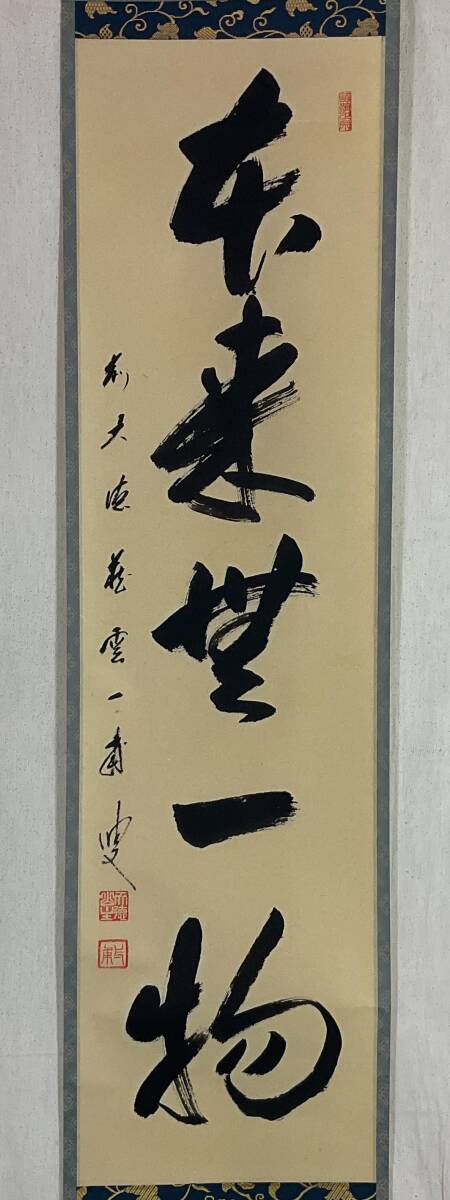 本来無一物
前大徳 藏雲一甫叟